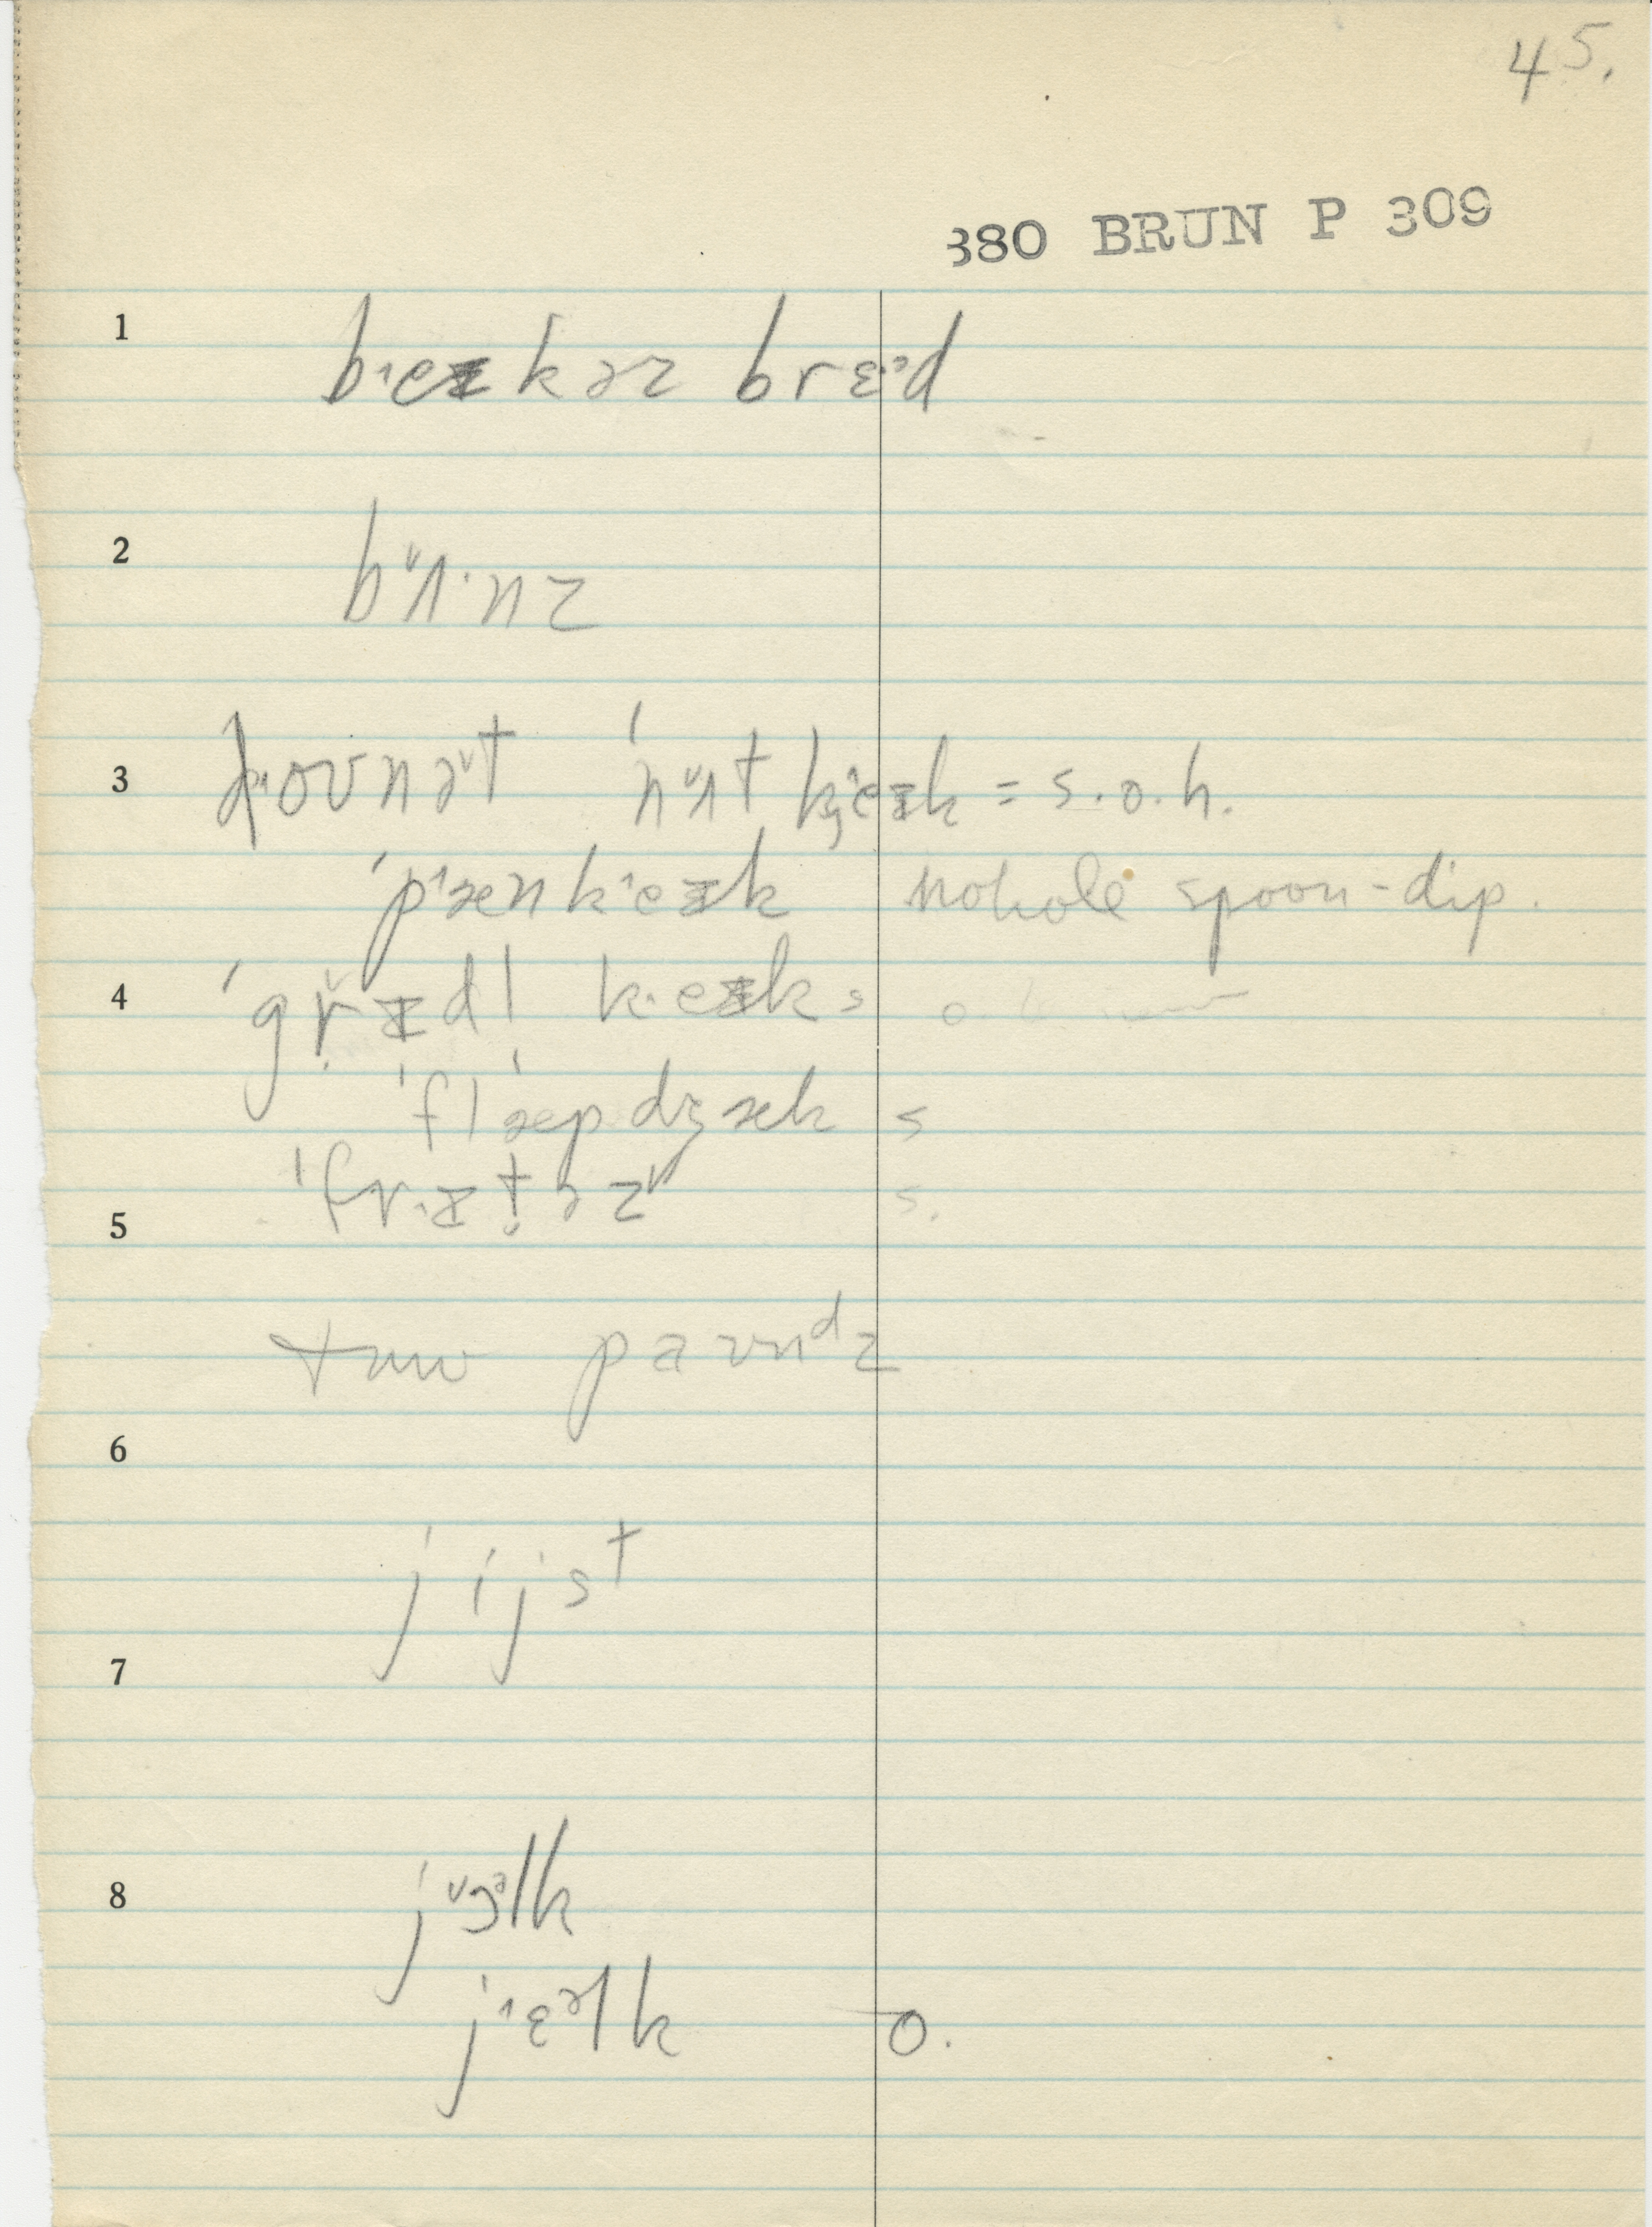 45.
380 BRUN P 309
1 bɪeɪkəz brɛəd
2 bᵛʌ·nz
3 dounəᵛt ˈnᵛʌt kɪeɪk = s.o.h.
ˈpɪænkɪeɪk nohole spoon-dip.
4 ˈgrɪdl kɪeɪk s
ˈflæpdʒæk s
5 ˈfrɪtəz s.
tuw paundz
6
jijst
7
8 jᵛɔəlk
jɪɛəlk o.